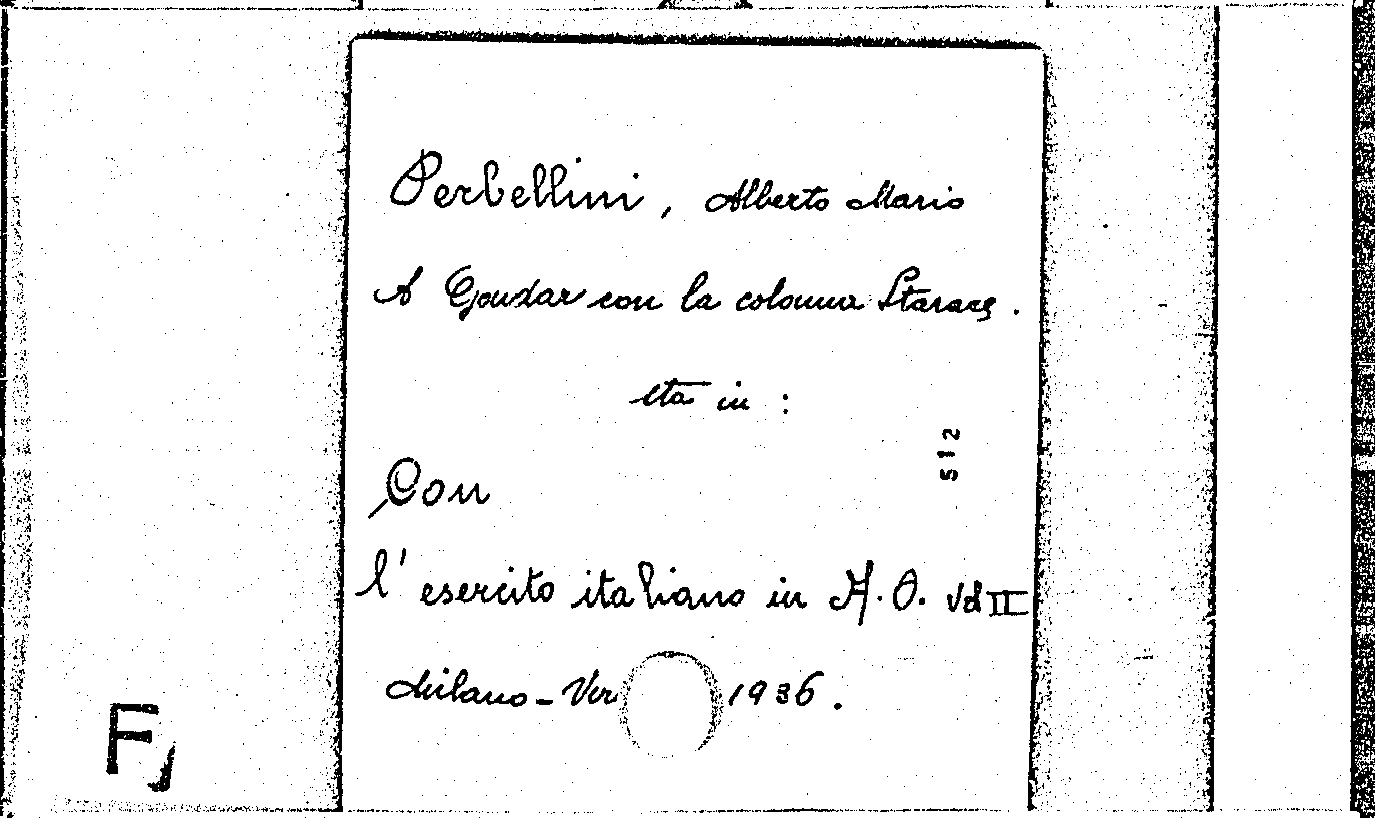 Perbellini, Alberto Mario
A Gondar con la colonna Starace.
sta in :
512
Con
l'esercito italiano in A.O. Vol II
Milano - Ver 1936.
F